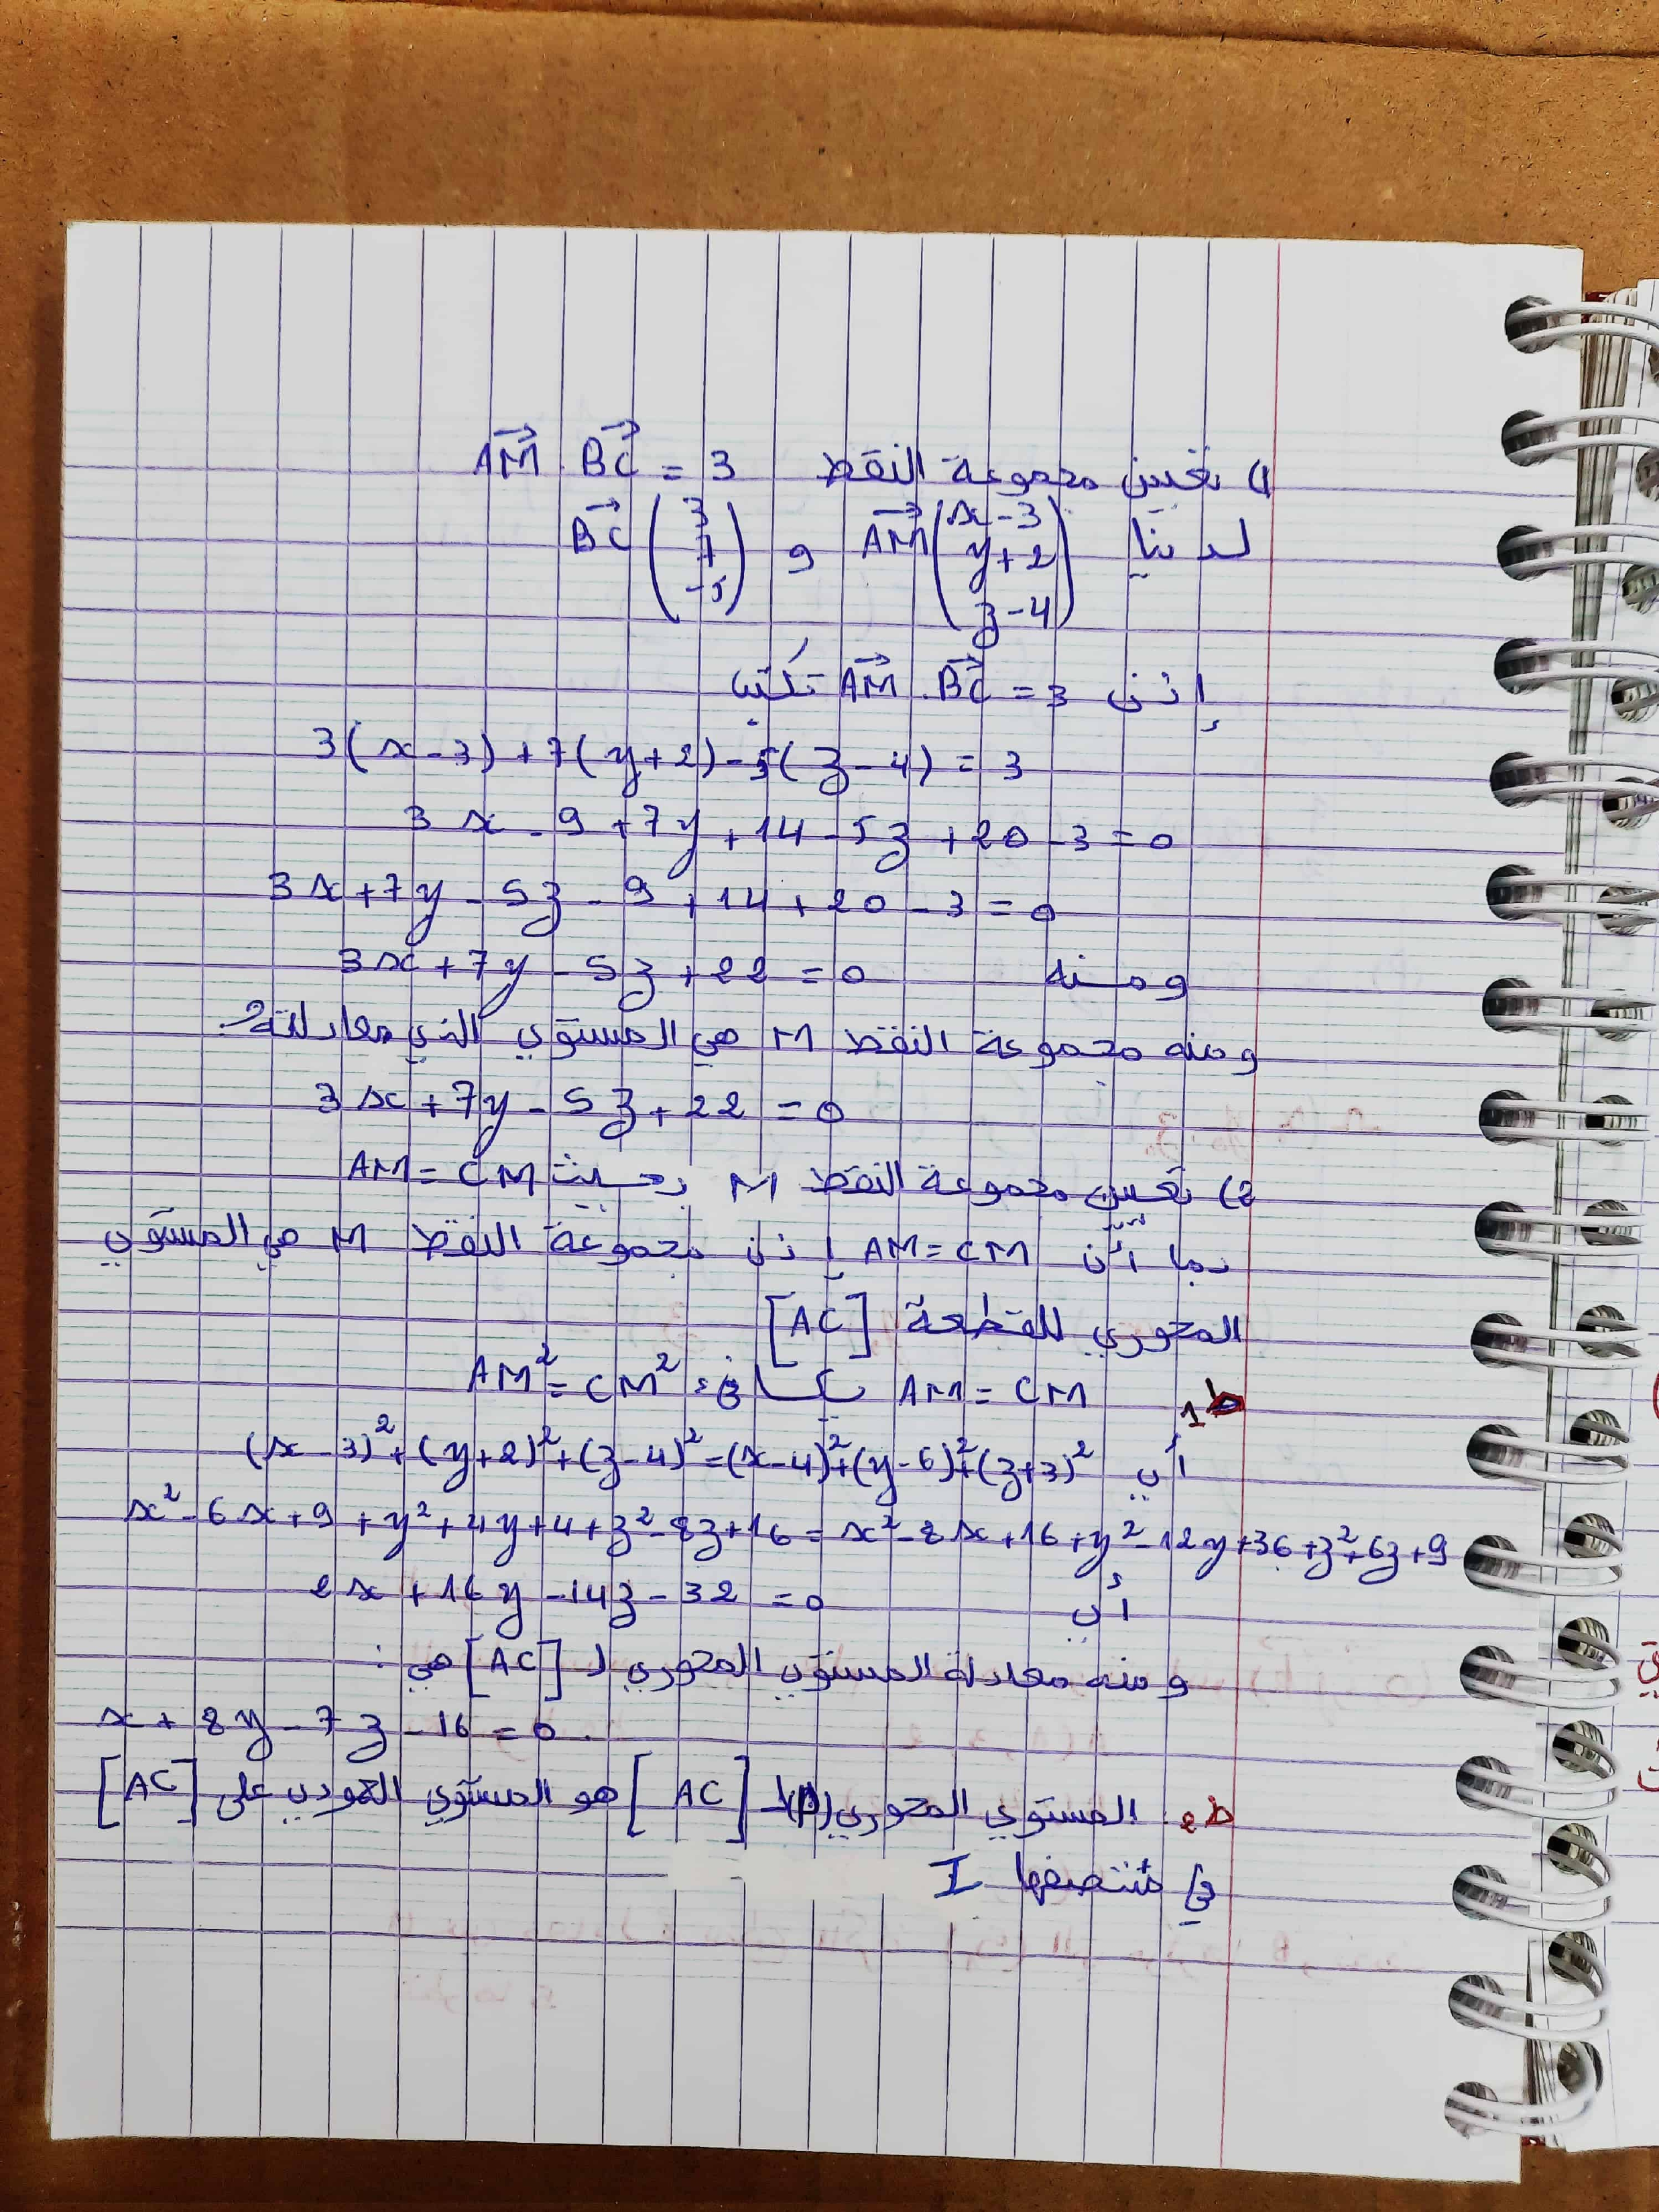 1) تعيين مجموعة النقط $\vec{AM} . \vec{BC} = 3$
لدينا $\vec{AM} \begin{pmatrix} x-3 \\ y+2 \\ z-4 \end{pmatrix}$ و $\vec{BC} \begin{pmatrix} 3 \\ 7 \\ -5 \end{pmatrix}$
إذن $\vec{AM} . \vec{BC} = 3$ تُكتب
$3(x-3)+7(y+2)-5(z-4)=3$
$3x-9+7y+14-5z+20-3=0$
$3x+7y-5z-9+14+20-3=0$
ومنه $3x+7y-5z+22=0$
ومنه مجموعة النقط M هي المستوي الذي معادلته
$3x+7y-5z+22=0$
2) تعيين مجموعة النقط M بحيث AM = CM
بما أن AM = CM إذن مجموعة النقط M هي المستوي
المحوري للقطعة [AC]
ط1 AM = CM تكافئ $AM^2 = CM^2$
أي $(x-3)^2+(y+2)^2+(z-4)^2=(x-4)^2+(y-6)^2+(z+3)^2$
$x^2-6x+9+y^2+4y+4+z^2-8z+16=x^2-8x+16+y^2-12y+36+z^2+6z+9$
أي $2x+16y-14z-32=0$
ومنه معادلة المستوي المحوري لـ [AC] هي :
$x+8y-7z-16=0$ .
ط2. المستوي المحوري (P) لـ [AC] هو المستوي العمودي على [AC]
في منتصفها I